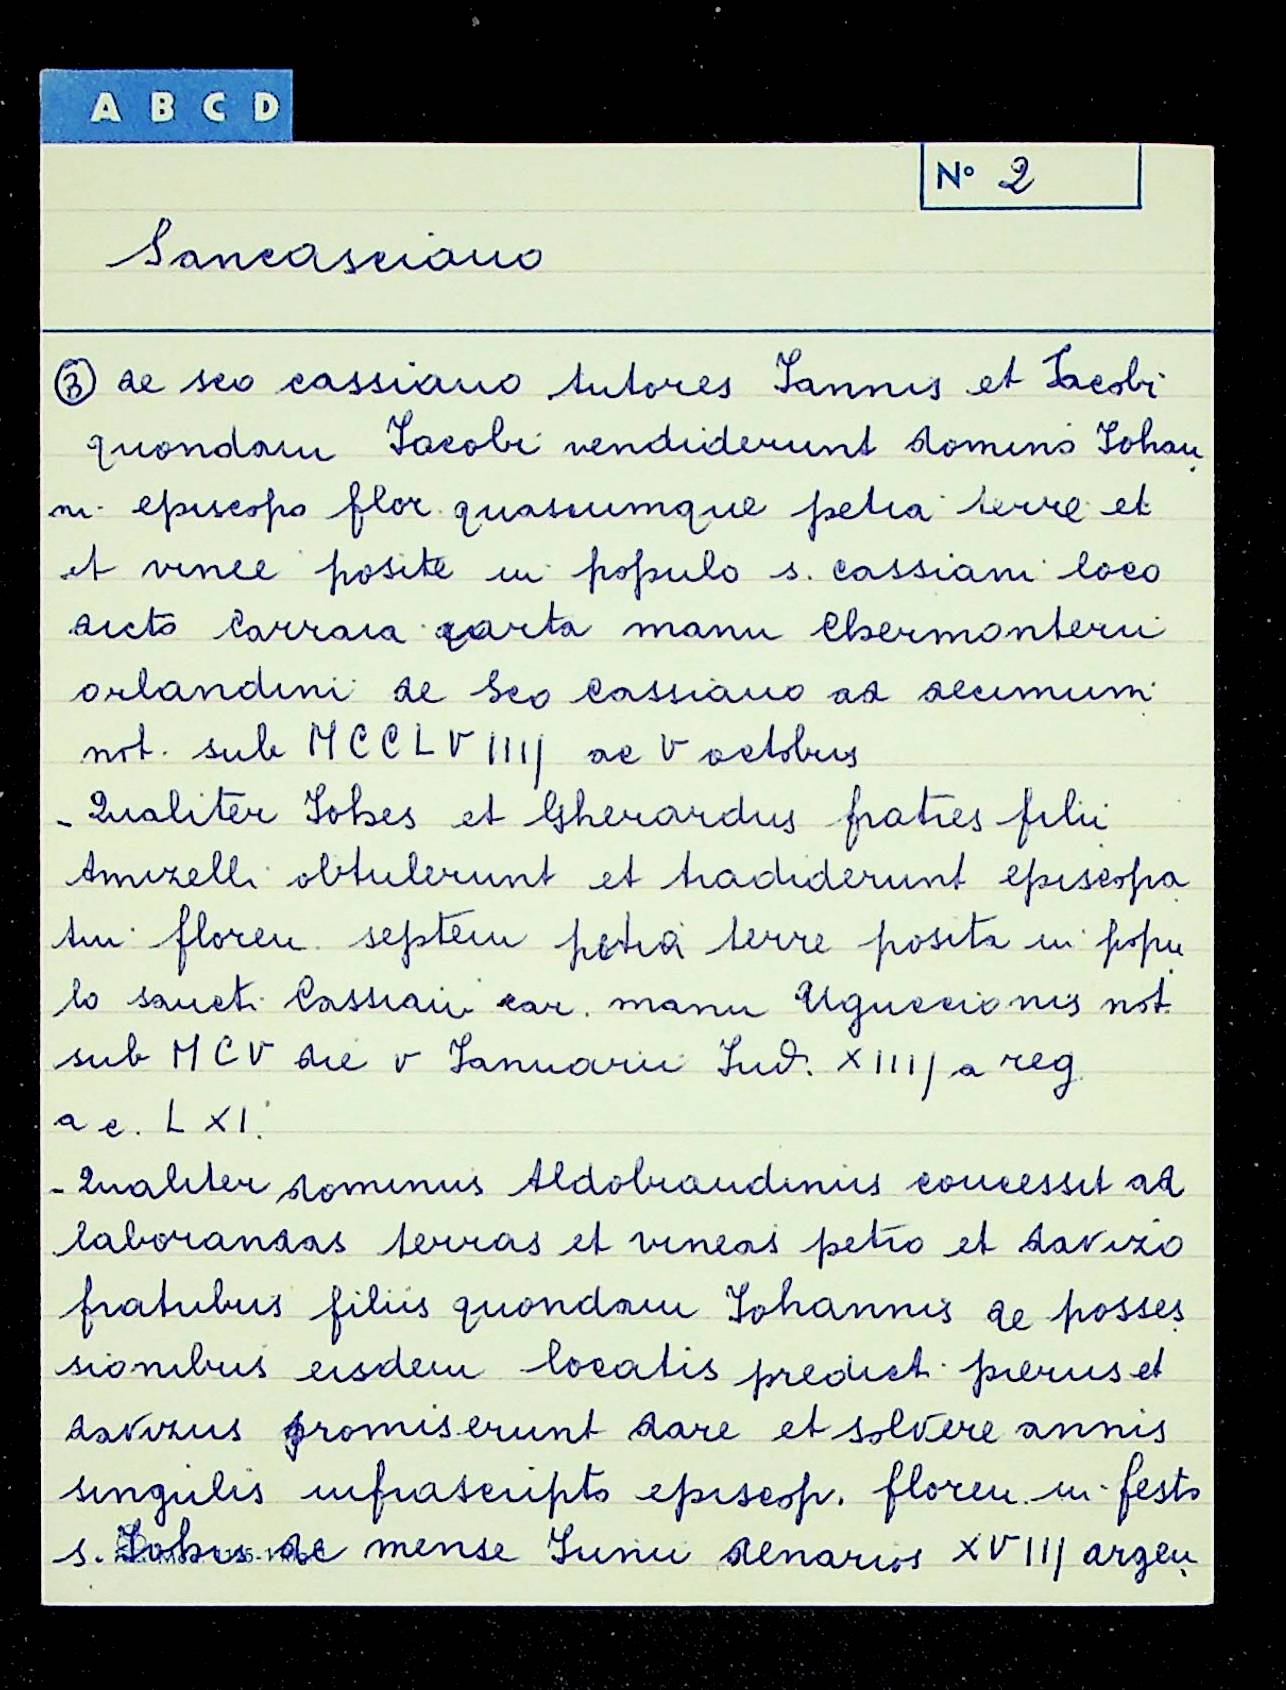 A B C D
Nº 2
Sancasciano
③ de sco cassiano tutores Iannis et Iacobi
quondam Iacobi vendiderunt domino Iohan
ni episcopo flor. quascumque petia terre et
et vinee posite in populo s. cassiani loco
dicto Carraia carta manu Chermonterii
orlandini de Sco Cassiano ad decimum
not. sub MCCLVIIII de V octobus
- Qualiter Iohes et Gherardus fratres filii
Amizelli obtulerunt et tradiderunt episcopa
tui floren. septem petia terre posita in popu
lo sancti Cassiani car. manu Uguccionis not.
sub MCV die V Ianuarii Ind. XIIII a reg.
a c. LXI.
- Qualiter dominus Aldobrandinus concessit ad
laborandas terras et vineas petro et davizo
fratribus filiis quondam Iohannis de posses
sionibus eisdem locatis predict. pierus et
davizus promiserunt dare et solvere annis
singulis infrascripto episcop. floren. in festo
s. Iohis de mense Iunii denarios XVIII argen